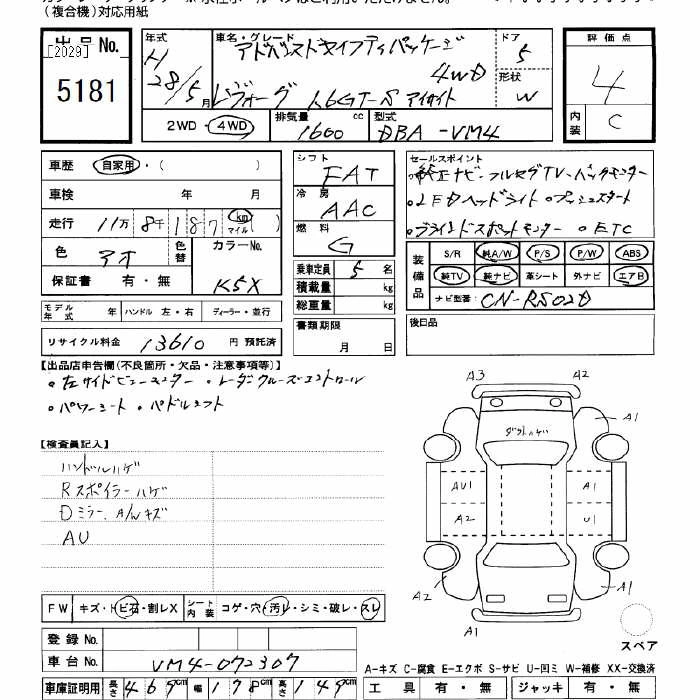 (複合機)対応用紙
出品No.
[2029]
5181
年式
H
28/5月
車名・グレード
アドバンスドセイフティパッケージ
4WD
レヴォーグ 1.6GT-S アイサイト
ドア
5
形状
W
2WD・4WD
排気量
1600 cc
型式
DBA-VM4
評価点
4
内装
C
車歴 自家用・( )
車検 年 月
走行 11万 8千 187 km マイル ( )
色 アオ
色替
カラーNo.
K5X
保証書 有・無
シフト
FAT
冷房
AAC
燃料
G
乗車定員 5名
積載量 kg
総重量 kg
セールスポイント
・純正ナビ・フルセグTV・バックモニター
・LEDヘッドライト ・プッシュスタート
・ブラインドスポットモニター ・ETC
装備品
S/R 純A/W P/S P/W ABS
純TV 純ナビ 革シート 外ナビ エアB
ナビ型番: CN-R502D
モデル年式 年 ハンドル 左・右 ディーラー・並行
書類期限
月 日
後日品
リサイクル料金 13610 円 預託済
【出品店申告欄(不良箇所・欠品・注意事項等)】
・左サイドビューモニター ・レーダークルーズコントロール
・パワーシート ・パドルシフト
【検査員記入】
ハンドルハゲ
Rスポイラーハゲ
Dミラー、A/Wキズ
AU
A3
A2
A1
ダクトハゲ
AU1
A1
A2
U1
A2
A1
A1
スペア
FW キズ・トビ石・割レX
シート内装 コゲ・穴・汚レ・シミ・破レ・スレ
登録No.
車台No. VM4-072307
A-キズ C-腐食 E-エクボ S-サビ U-凹ミ W-補修 XX-交換済
車庫証明用 長さ 469cm 幅 178cm 高さ 149cm
工具 有・無 ジャッキ 有・無